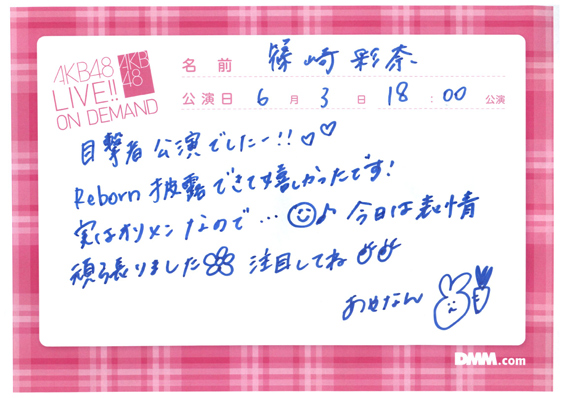 AKB48
LIVE!!
ON DEMAND
AKB
48
名前 篠崎彩奈
公演日 6月3日 18:00 公演
目撃者公演でしたー!!♡♡
Reborn 披露できて嬉しかったです!
実はオリメンなので…♪今日は表情
頑張りました 注目してね
あやなん
DMM.com